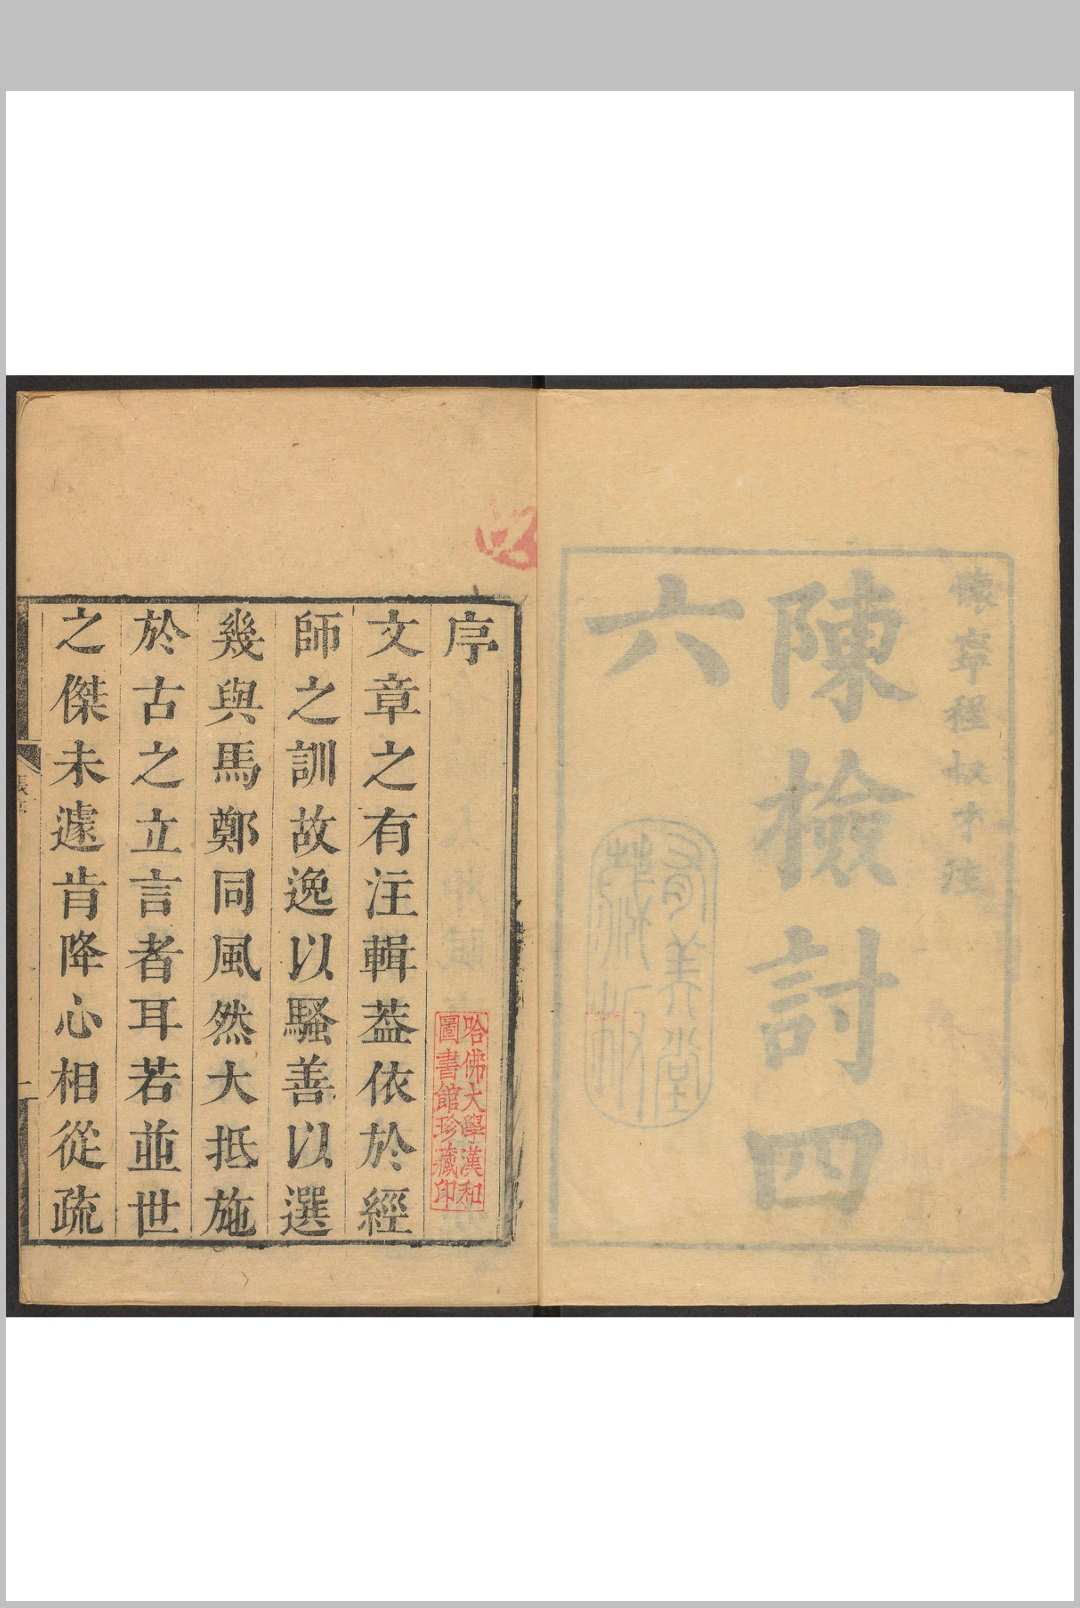 懷寧程叔才註
陳檢討四
六
有美堂
藏板
序
哈佛大學漢和
圖書館珍藏印
文章之有注輯葢依於經
師之訓故逸以騷善以選
幾與馬鄭同風然大抵施
於古之立言者耳若並世
之傑未遽肯降心相從疏